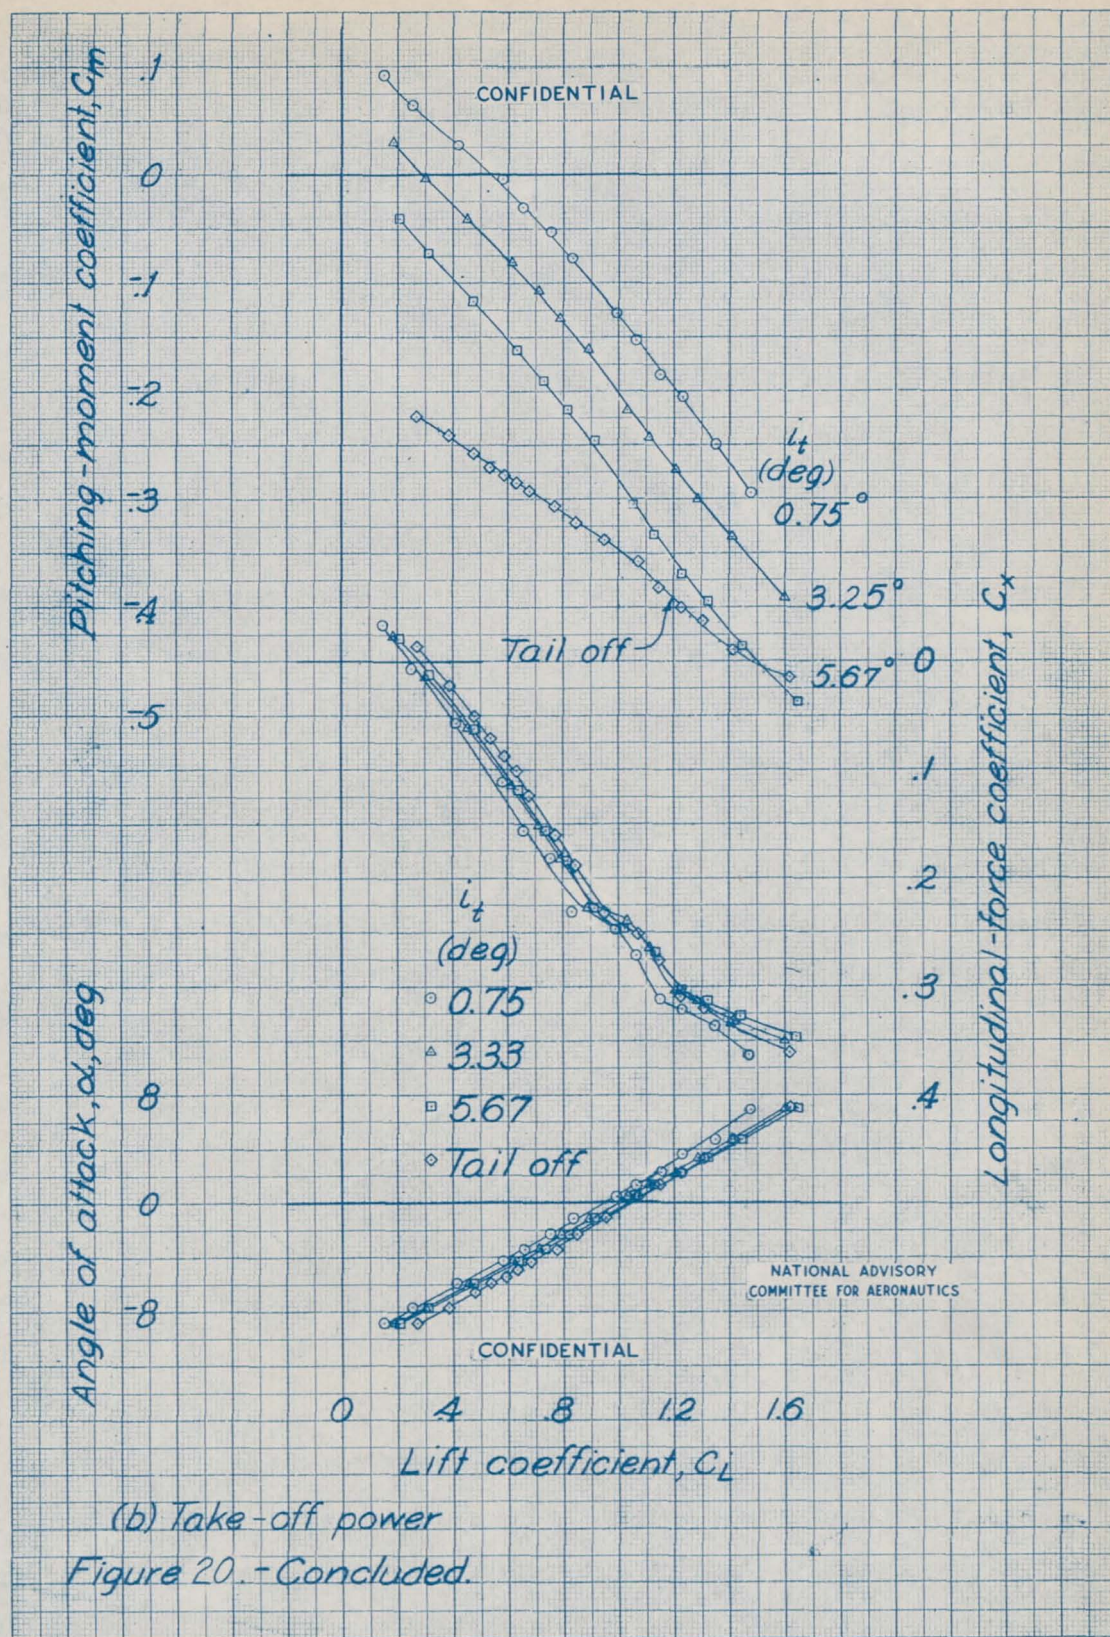 CONFIDENTIAL
Pitching-moment coefficient, Cm
.1
0
-.1
-.2
-.3
-.4
-.5
it
(deg)
0.75°
3.25°
5.67°
Tail off
Longitudinal-force coefficient, Cx
0
.1
.2
.3
.4
it
(deg)
0.75
3.33
5.67
Tail off
Angle of attack, α, deg
8
0
-8
NATIONAL ADVISORY
COMMITTEE FOR AERONAUTICS
CONFIDENTIAL
0 .4 .8 1.2 1.6
Lift coefficient, CL
(b) Take-off power
Figure 20.-Concluded.